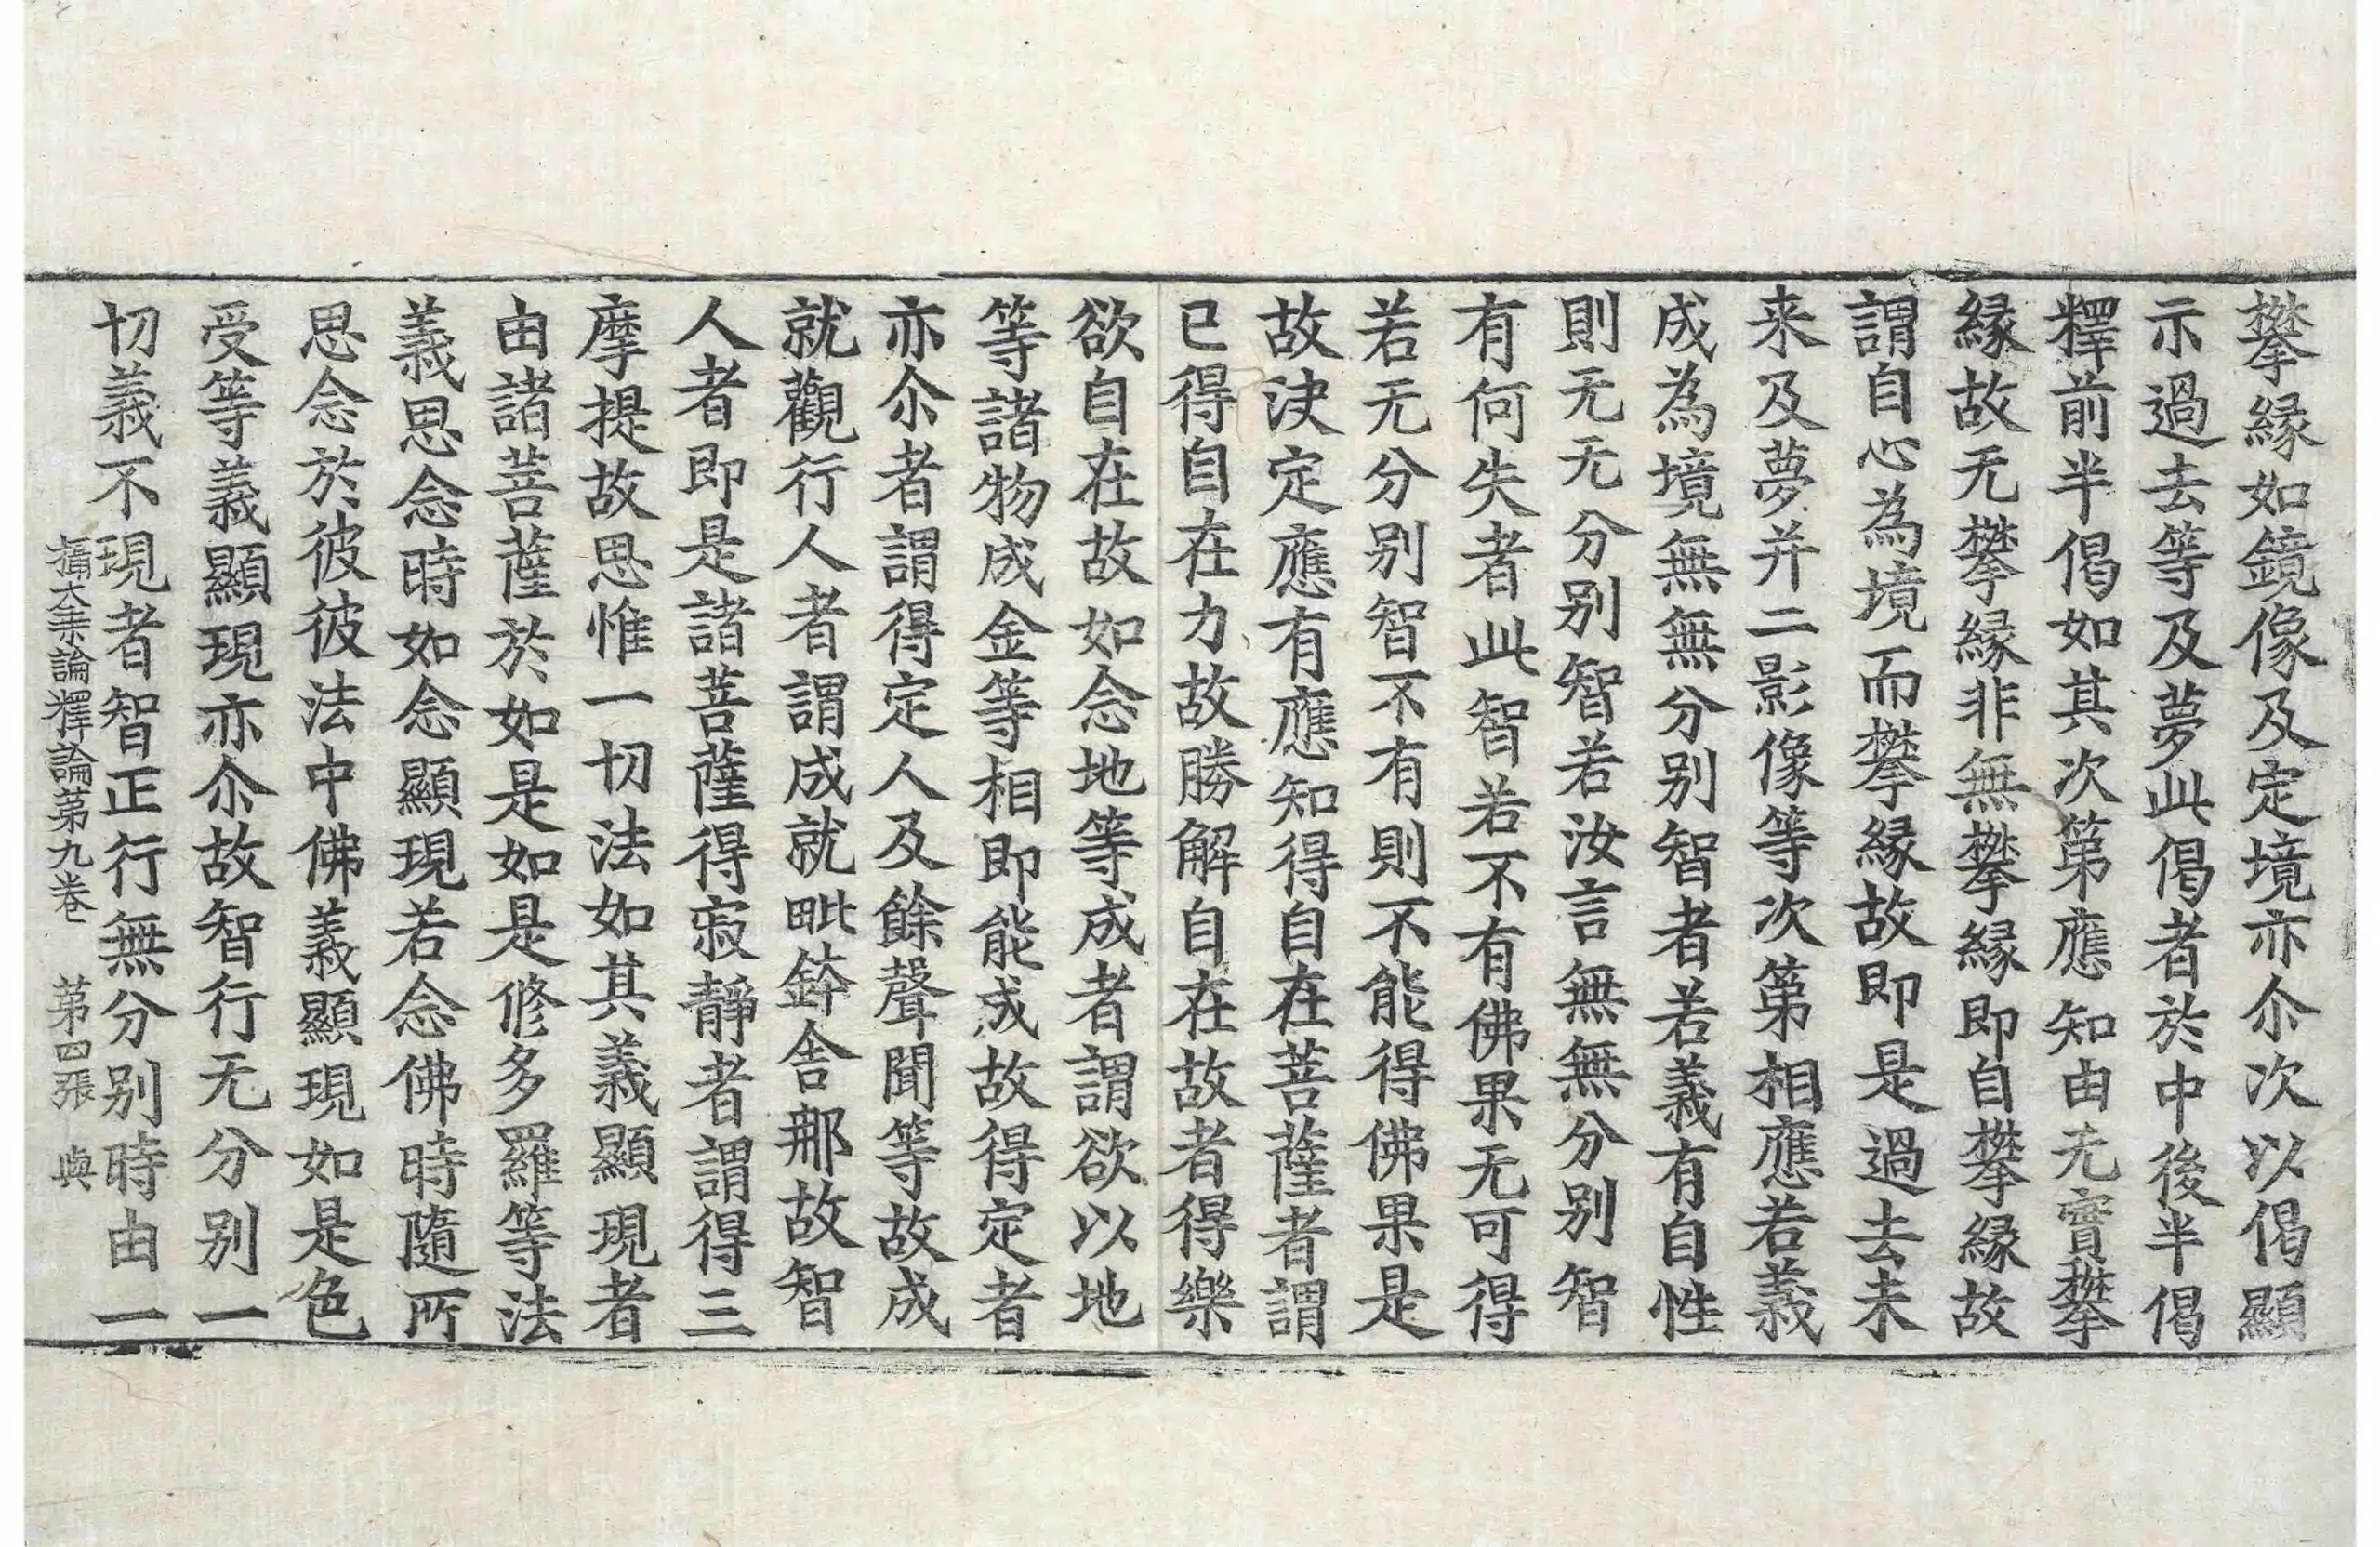 攀緣如鏡像及定境亦尒次以偈顯
示過去等及夢此偈者於中後半偈
釋前半偈如其次第應知由无實攀
緣故无攀緣非無攀緣即自攀緣故
謂自心為境而攀緣故即是過去未
来及夢并二影像等次第相應若義
成為境無無分别智者若義有自性
則无无分别智若汝言無無分别智
有何失者此智若不有佛果无可得
若无分别智不有則不能得佛果是
故決定應有應知得自在菩薩者謂
已得自在力故勝解自在故者得樂
欲自在故如念地等成者謂欲以地
等諸物成金等相即能成故得定者
亦尒者謂得定人及餘聲聞等故成
就觀行人者謂成就毗鉢舍那故智
人者即是諸菩薩得寂靜者謂得三
摩提故思惟一切法如其義顯現者
由諸菩薩於如是如是修多羅等法
義思念時如念顯現若念佛時隨所
思念於彼彼法中佛義顯現如是色
受等義顯現亦尒故智行无分别一
切義不現者智正行無分别時由一
攝大乗論釋論第九卷 第四張 與